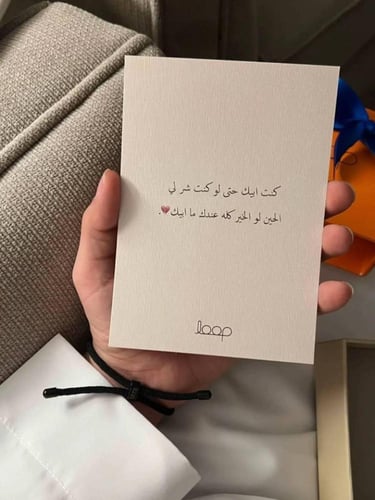 كنت ابيك حتى لو كنت شر لي
الحين لو الخير كله عندك ما ابيك💗.
loop